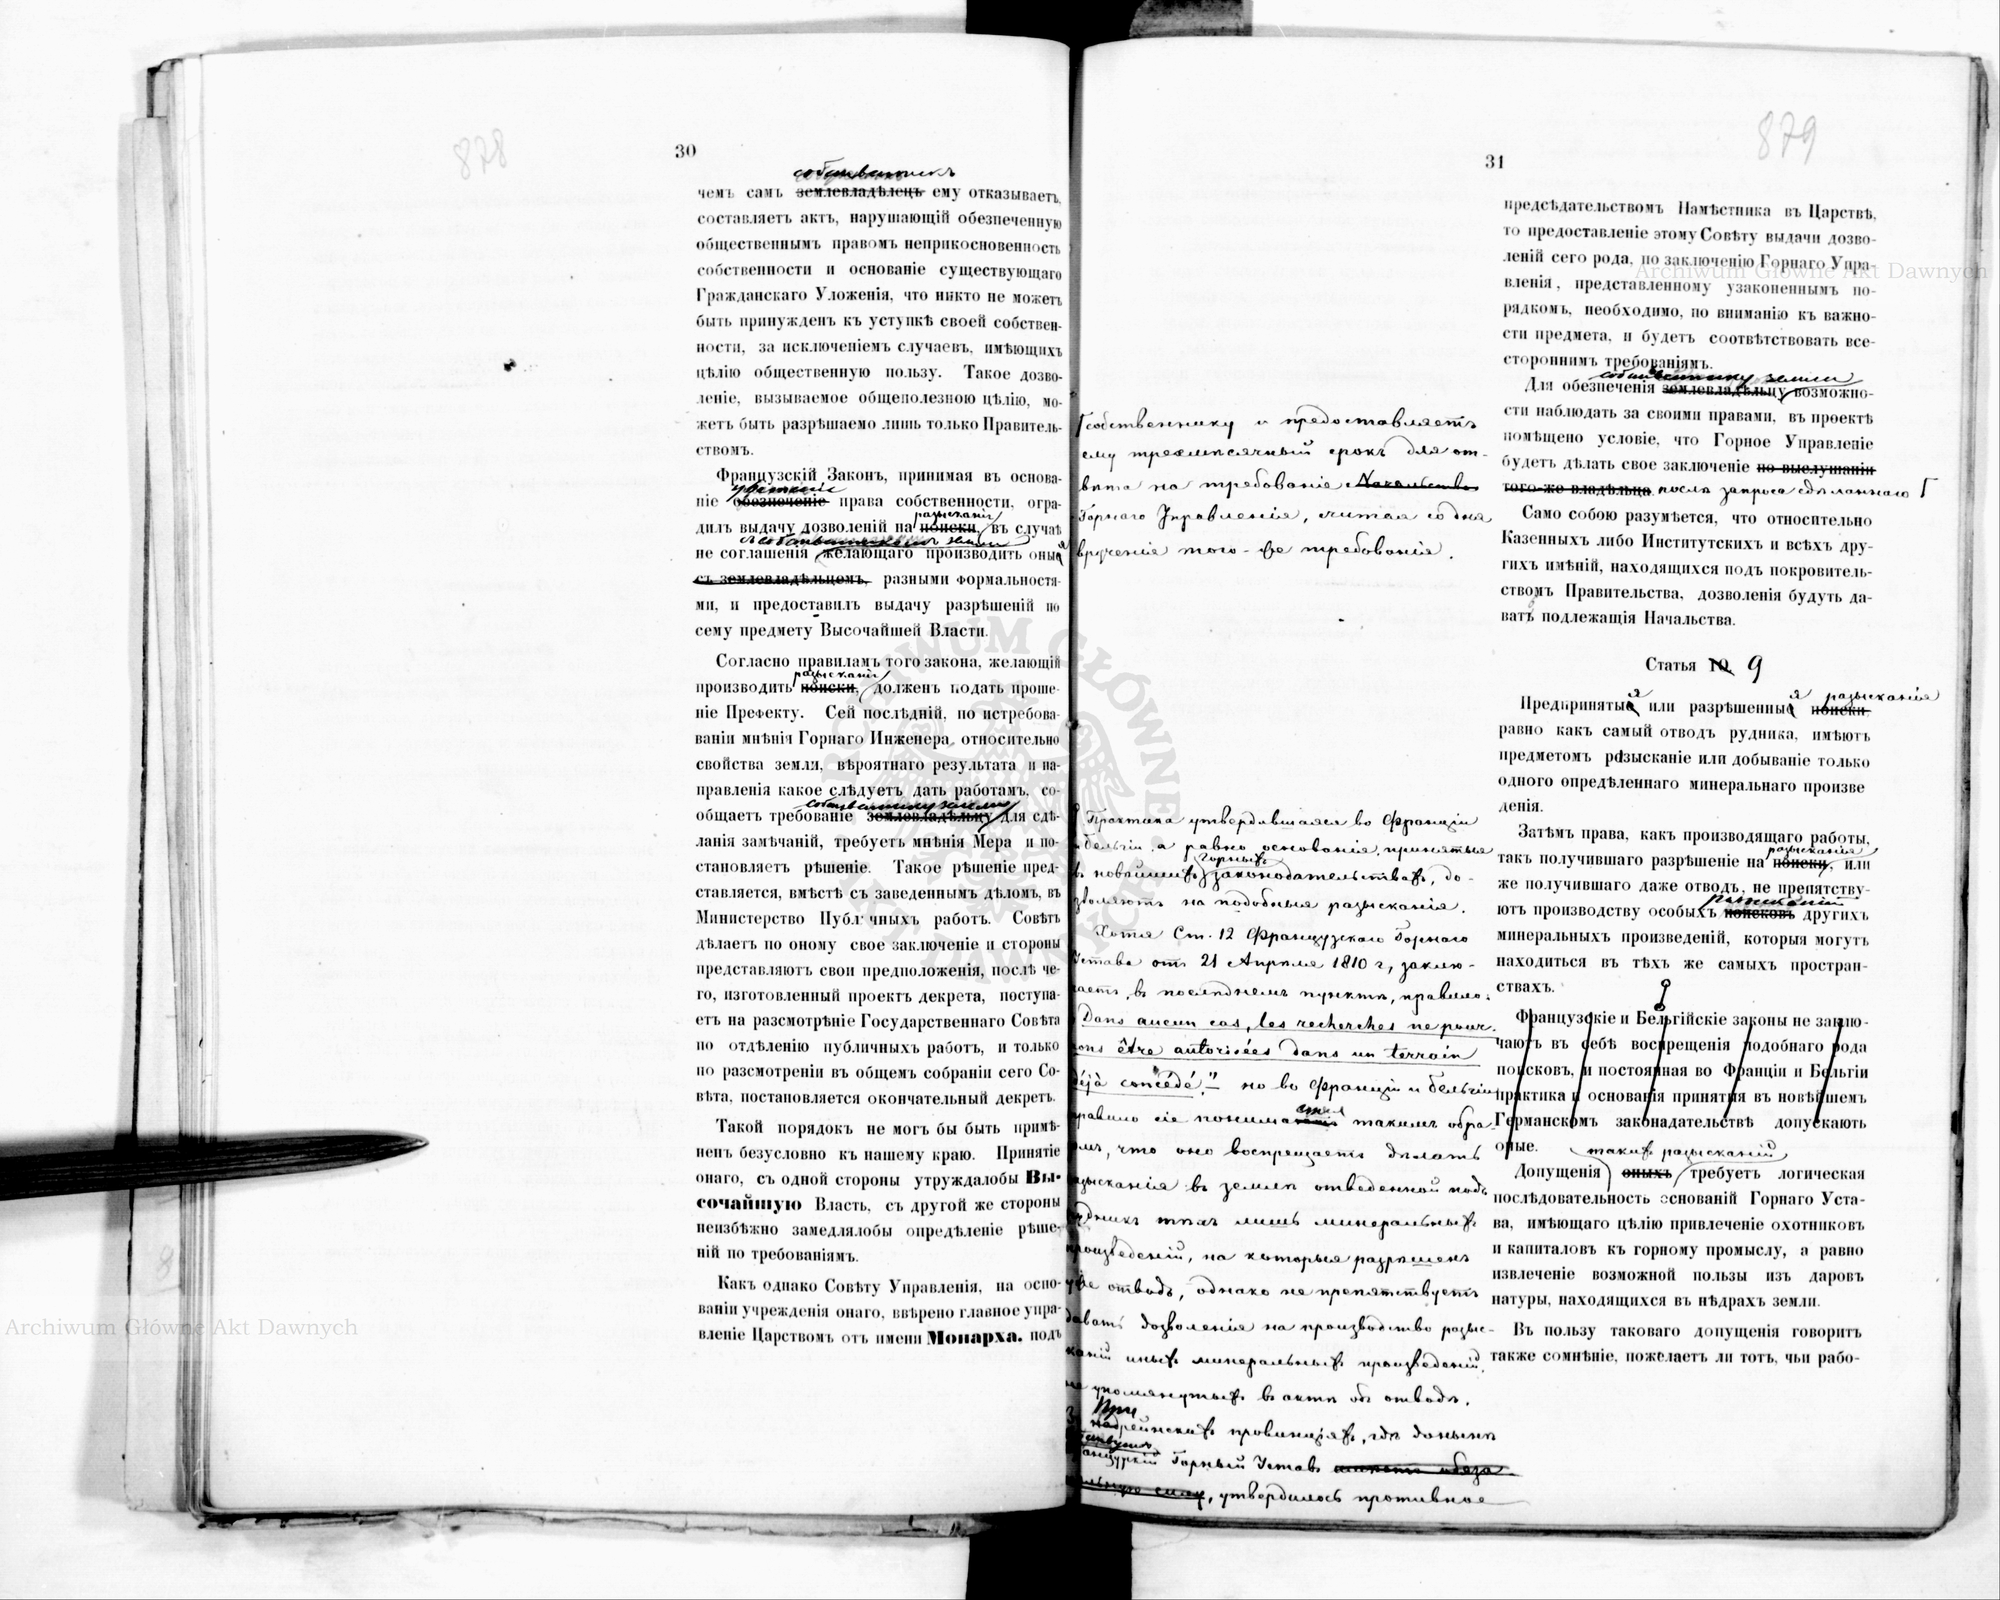 878
30
собственникъ
чемъ самъ землевладѣлецъ ему отказываетъ,
составляетъ актъ, нарушающій обезпеченную
общественнымъ правомъ неприкосновенность
собственности и основаніе существующаго
Гражданскаго Уложенія, что никто не можетъ
быть принужденъ къ уступкѣ своей собствен-
ности, за исключеніемъ случаевъ, имѣющихъ
цѣлію общественную пользу. Такое дозво-
леніе, вызываемое общеполезною цѣлію, мо-
жетъ быть разрѣшаемо лишь только Правитель-
ствомъ.
Французскій Законъ, принимая въ основа-
ніе обезпоченіе права собственности, огра-
разысканія
дилъ выдачу дозволеній на поиски, въ случаѣ
съ собственникомъ земли
не соглашенія желающаго производить оныя
съ землевладѣльцемъ, разными формальностя-
ми, и предоставилъ выдачу разрѣшеній по
сему предмету Высочайшей Власти.
Согласно правиламъ того закона, желающій
разысканія
производить поиски, долженъ подать проше-
ніе Префекту. Сей послѣдній, по истребова-
ваніи мнѣнія Горнаго Инженера, относительно
свойства земли, вѣроятнаго результата и на-
правленія какое слѣдуетъ дать работамъ, со-
собственнику земли
общаетъ требованіе землевладѣльцу для сдѣ-
ланія замѣчаній, требуетъ мнѣнія Мера и по-
становляетъ рѣшеніе. Такое рѣшеніе пред-
ставляется, вмѣстѣ съ заведеннымъ дѣломъ, въ
Министерство Публичныхъ работъ. Совѣтъ
дѣлаетъ по оному свое заключеніе и стороны
представляютъ свои предположенія, послѣ че-
го, изготовленный проектъ декрета, поступа-
етъ на разсмотрѣніе Государственнаго Совѣта
по отдѣленію публичныхъ работъ, и только
по разсмотреніи въ общемъ собраніи сего Со-
вѣта, постановляется окончательный декретъ.
Такой порядокъ не могъ бы быть примѣ-
ненъ безусловно къ нашему краю. Принятіе
онаго, съ одной стороны утруждалобы Вы-
сочайшую Власть, съ другой же стороны
неизбѣжно замедлялобы опредѣленіе рѣше-
ній по требованіямъ.
Какъ однако Совѣту Управленія, на осно-
ваніи учрежденія онаго, ввѣрено главное упра-
вленіе Царствомъ отъ имени Монарха, подъ
879
31
предсѣдательствомъ Намѣстника въ Царствѣ,
то предоставленіе этому Совѣту выдачи дозво-
леній сего рода, по заключенію Горнаго Упра-
вленія, представленному узаконеннымъ по-
рядкомъ, необходимо, по вниманію къ важно-
сти предмета, и будетъ соотвѣтствовать все-
стороннимъ требованіямъ.
собственнику земли
Для обезпеченія землевладѣльцу возможно-
сти наблюдать за своими правами, въ проектѣ
помѣщено условіе, что Горное Управленіе
будетъ дѣлать свое заключеніе по выслушаніи
того-же владѣльца послѣ запроса сдѣланнаго
Само собою разумѣется, что относительно
Казенныхъ либо Институтскихъ и всѣхъ дру-
гихъ имѣній, находящихся подъ покровитель-
ствомъ Правительства, дозволенія будутъ да-
вать подлежащія Начальства.
Статья 10 9
я я разысканія
Предпринятые или разрѣшенные поиски
равно какъ самый отводъ рудника, имѣютъ
предметомъ розысканіе или добываніе только
одного опредѣленнаго минеральнаго произве
денія.
Затѣмъ права, какъ производящаго работы,
разысканія
такъ получившаго разрѣшеніе на поиски, или
же получившаго даже отводъ, не препятству-
разысканій
ютъ производству особыхъ поисковъ другихъ
минеральныхъ произведеній, которыя могутъ
находиться въ тѣхъ же самыхъ простран-
ствахъ.
Французскіе и Бельгійскіе законы не заклю-
чаютъ въ себѣ воспрещенія подобнаго рода
поисковъ, и постоянная во Франціи и Бельгіи
практика и основанія принятыя въ новѣйшемъ
Германскомъ законадательствѣ допускаютъ
оные.
такихъ разысканій
Допущенія оныхъ требуетъ логическая
послѣдовательность основаній Горнаго Уста-
ва, имѣющаго цѣлію привлеченіе охотниковъ
и капиталовъ къ горному промыслу, а равно
извлеченіе возможной пользы изъ даровъ
натуры, находящихся въ нѣдрахъ земли.
Въ пользу таковаго допущенія говоритъ
также сомнѣніе, пожелаетъ ли тотъ, чьи рабо-
собственнику и предоставляетъ
ему трехмѣсячный срокъ для от-
вѣта на требованіе Начальства
Горнаго Управленія, считая со дня
врученія того-же требованія.
Практика утвердившаяся во Франціи
и Бельгіи а равно основанія, принятыя
горныхъ
въ новѣйшихъ законодательствахъ, до-
зволяютъ на подобныя разысканія.
Хотя Ст. 12 Французскаго Горнаго
Устава отъ 21 Апрѣля 1810 г, заклю-
чаетъ, въ послѣднемъ пунктѣ, правило:
Dans aucun cas, les recherches ne pour-
rons être autorisées dans un terrain
déjà concédé" — но во Франціи и Бельгіи
правило сіе понимается такимъ обра-
зомъ, что оно воспрещаетъ дѣлать
разысканія въ землѣ отведенной подъ
рудникъ тѣхъ лишь минеральныхъ
произведеній, на которыя разрѣшенъ
уже отводъ, однако не препятствуетъ
давать дозволенія на производство разыс-
каній иныхъ минеральныхъ произведеній,
не упомянутыхъ въ актѣ объ отводѣ.
При
надрейнскихъ провинціяхъ, гдѣ донынѣ
Французскій Горный Уставъ имѣетъ обяза-
тельную силу, утвердилось противное
Archiwum Główne Akt Dawnych
Archiwum Główne Akt Dawnych
ARCHIWUM GŁÓWNE AKT DAWNYCH